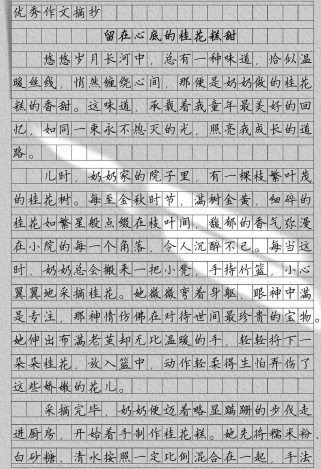 优秀作文摘抄
留在心底的桂花糕甜
悠悠岁月长河中，总有一种味道，恰似温
暖丝线，悄然缠绕心间，那便是奶奶做的桂花
糕的香甜。这味道，承载着我童年最美好的回
忆，如同一束永不熄灭的光，照亮我成长的道
路。
儿时，奶奶家的院子里，有一棵枝繁叶茂
的桂花树。每至金秋时节，满树金黄，细碎的
桂花如繁星般点缀在枝叶间，馥郁的香气弥漫
在小院的每一个角落，令人沉醉不已。每当这
时，奶奶总会搬来一把小凳，手持竹篮，小心
翼翼地采摘桂花。她微微弯着身躯，眼神中满
是专注，那神情仿佛在对待世间最珍贵的宝物。
她伸出布满老茧却无比温暖的手，轻轻将下一
朵朵桂花，放入篮中，动作轻柔得生怕弄伤了
这些娇嫩的花儿。
采摘完毕，奶奶便迈着略显蹒跚的步伐走
进厨房，开始着手制作桂花糕。她先将糯米粉、
白砂糖、清水按照一定比例混合在一起，手法